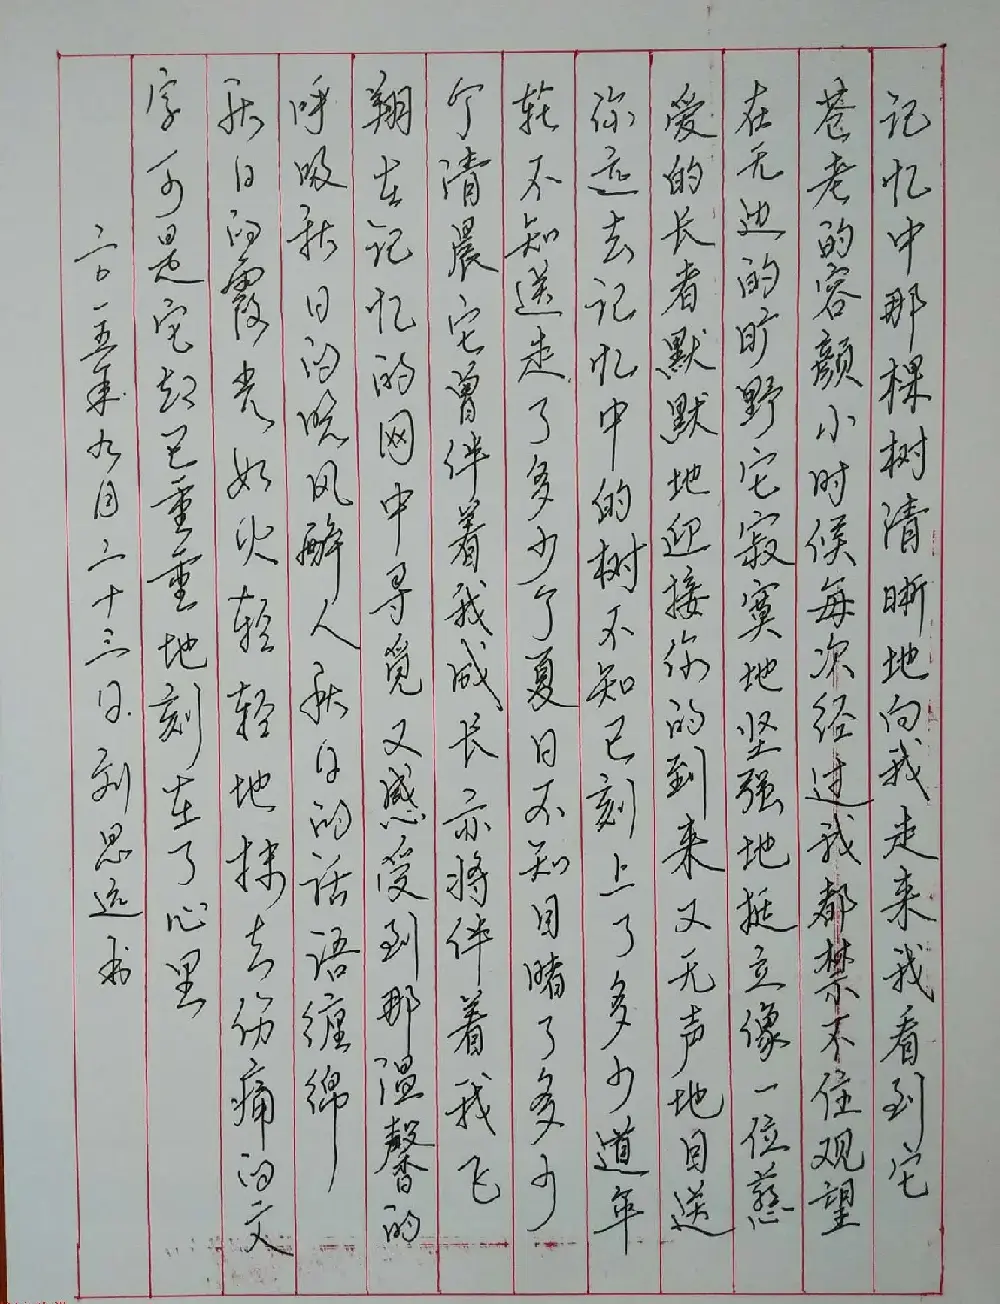 记忆中那棵树清晰地向我走来我看到它
苍老的容颜小时候每次经过我都禁不住观望
在无边的旷野它寂寞地坚强地挺立像一位慈
爱的长者默默地迎接你的到来又无声地目送
你远去记忆中的树不知已刻上了多少道年
轮不知送走了多少个夏日不知目睹了多少
个清晨它曾伴着我成长亦将伴着我飞
翔在记忆的网中寻觅又感受到那温馨的
呼吸秋日的晚风醉人秋日的话语缠绵
秋日的霞光如火轻轻地抹去伤痛的文
字可是它却已重重地刻在了心里
二〇一五年九月二十三日刘思远书